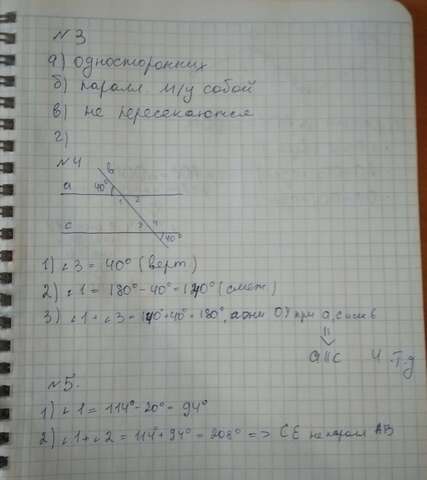 №3
а) односторонних
б) паралл м/у собой
в) не пересекаются
г)
№4
в
а 40°
1 2
с 3 4
40°
1) ∠3 = 40° (верт)
2) ∠1 = 180° - 40° = 140° (смеж)
3) ∠1 + ∠3 = 140° + 40° = 180°, а они ОУ при а, с и сек в
⇓
а॥с ч.т.д
№5.
1) ∠1 = 114° - 20° = 94°
2) ∠1 + ∠2 = 114° + 94° = 208° => CE не паралл AB